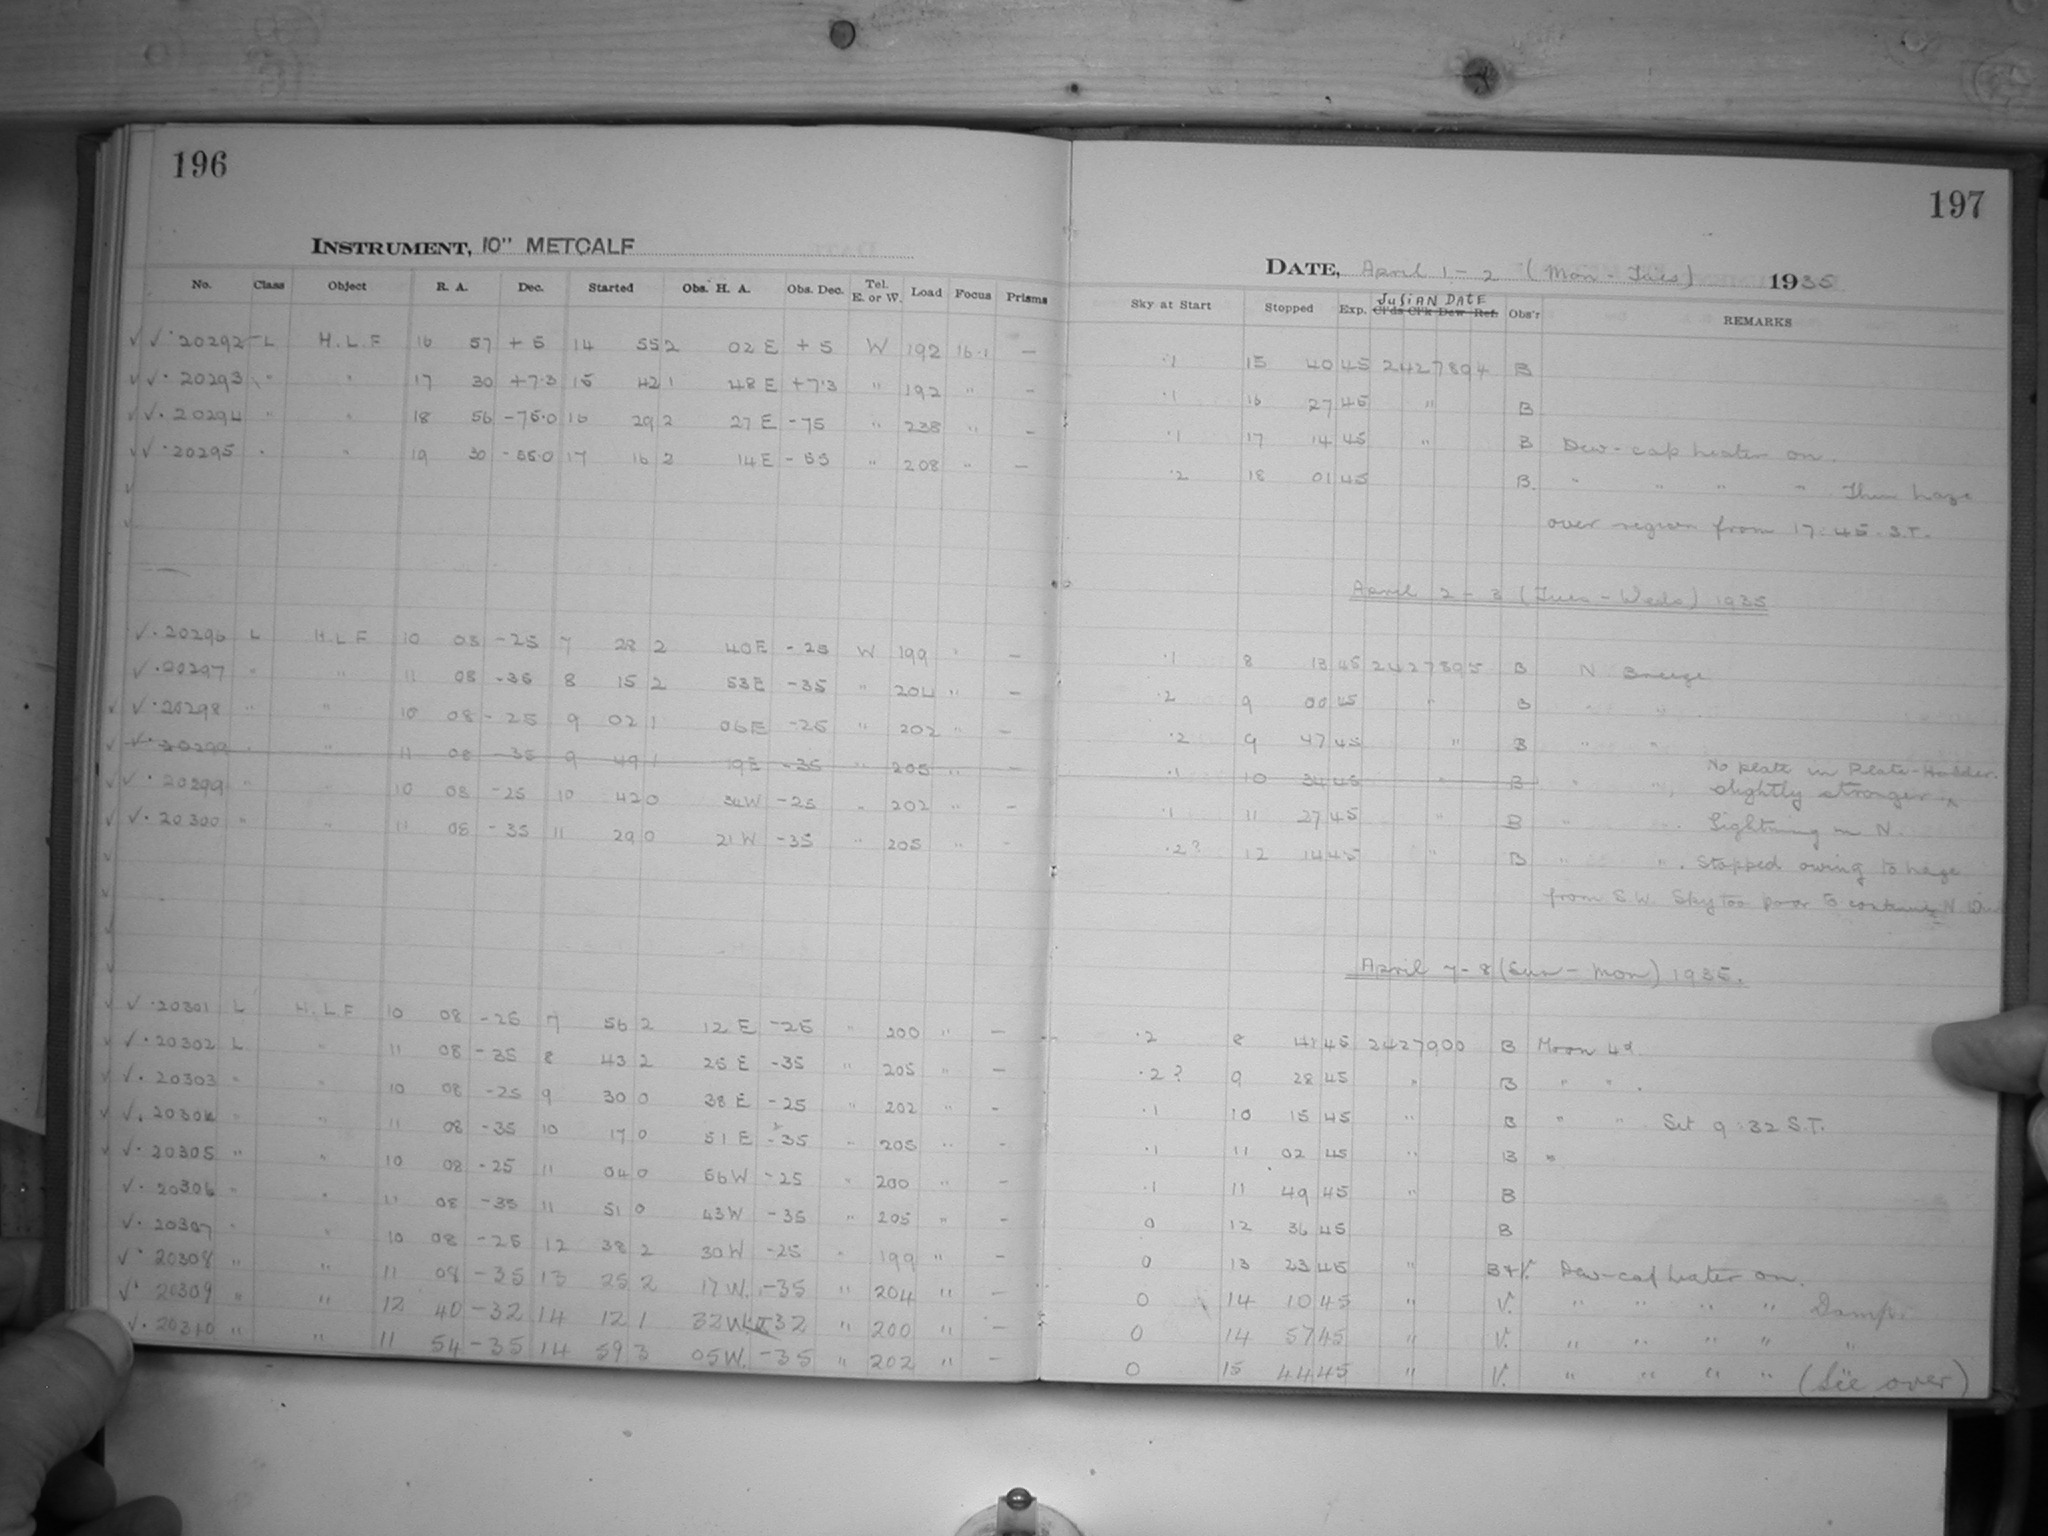 196
INSTRUMENT, 10" METCALF
No. Class Object R. A. Dec. Started Obs. H. A. Obs. Dec. Tel. E. or W. Load Focus Prisms
√ √ · 20292 L H.L.F 16 57 + 5 14 55 2 02 E + 5 W 192 16.1 —
√ √ · 20293 " " 17 30 +7.3 15 42 1 48 E +7.3 " 192 " —
√ √ · 20294 " " 18 56 -75.0 16 29 2 27 E -75 " 238 " —
√ √ · 20295 " " 19 30 -55.0 17 16 2 14 E - 55 " 208 " —
√ · 20296 L H.L.F 10 08 -25 7 28 2 40 E - 25 W 199 " —
√ · 20297 " " 11 08 -35 8 15 2 53 E -35 " 204 " —
√ √ · 20298 " " 10 08 - 25 9 02 1 06 E -25 " 202 " —
√ √ · 20299 " " 11 08 -35 9 49 1 19 E -35 " 205 " —
√ √ · 20299 " " 10 08 -25 10 42 0 34 W -25 " 202 " —
√ √ · 20300 " " 11 08 - 35 11 29 0 21 W -35 " 205 " —
√ √ · 20301 L H.L.F 10 08 -25 7 56 2 12 E -25 " 200 " —
√ √ · 20302 L " 11 08 -35 8 43 2 25 E -35 " 205 " —
√ √ · 20303 " " 10 08 -25 9 30 0 38 E -25 " 202 " —
√ √ · 20304 " " 11 08 -35 10 17 0 51 E -35 " 205 " —
√ √ · 20305 " " 10 08 -25 11 04 0 56 W -25 " 200 " —
√ · 20306 " " 11 08 -35 11 51 0 43 W -35 " 205 " —
√ · 20307 " " 10 08 -25 12 38 2 30 W -25 " 199 " —
√ · 20308 " " 11 08 -35 13 25 2 17 W. -35 " 204 " —
√ · 20309 " " 12 40 -32 14 12 1 32 W 32 " 200 " —
√ · 20310 " " 11 54 -35 14 59 3 05 W. -35 " 202 " —
197
DATE, April 1 - 2 (Mon - Tues) 1935
Sky at Start Stopped Exp. JULIAN DATE Cl'ds Cl'k Dew Ref. Obs'r REMARKS
.1 15 40 45 2427894 B
.1 16 27 45 " B
.1 17 14 45 " B Dew-cap heater on.
.2 18 01 45 B. " " " " Thin haze
over region from 17:45 S.T.
April 2 - 3 (Tues - Weds) 1935
.1 8 13 45 2427895 B N Breeze
.2 9 00 45 " B " "
.2 9 47 45 " B " "
No plate in Plate-Holder.
.1 10 34 45 " B " " slightly stronger
.1 11 27 45 " B " " Lightning in N.
.2? 12 14 45 " B " " . Stopped owing to haze
from S.W. Sky too poor to continue N
April 7 - 8 (Sun - Mon) 1935.
.2 8 41 45 2427900 B Moon 4d.
.2? 9 28 45 " B " " .
.1 10 15 45 " B " " Set 9:32 S.T.
.1 11 02 45 " B "
.1 11 49 45 " B
0 12 36 45 B
0 13 23 45 " B+V. Dew-cap heater on.
0 14 10 45 " V. " " " " Damp.
0 14 57 45 " V. " " " " "
0 15 44 45 " V. " " " " (See over)